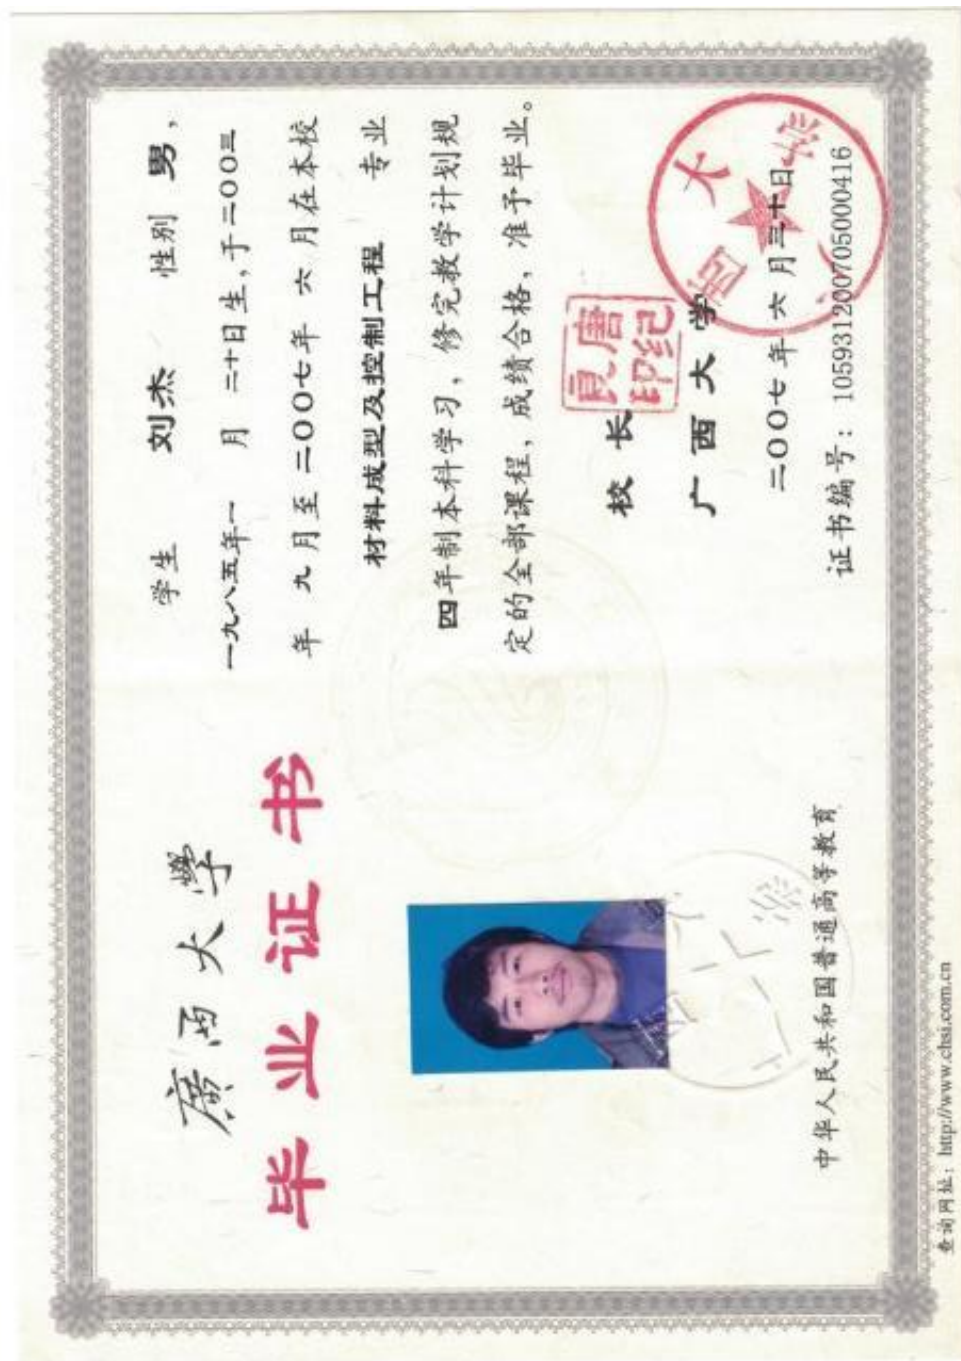 廣西大學
毕业证书
中华人民共和国普通高等教育
查询网址：http://www.chsi.com.cn
学生 刘杰 性别 男，
一九八五年一 月 二十日生，于二〇〇三
年 九 月至 二〇〇七年 六 月在本校
材料成型及控制工程 专业
四年制本科学习，修完教学计划规
定的全部课程，成绩合格，准予毕业。
校 长
唐纪良印
广西大学
二〇〇七年 六 月三十日
证书编号：105931200705000416